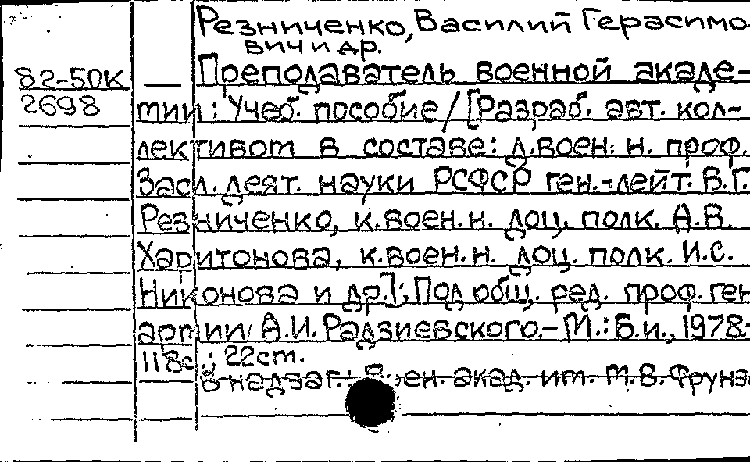 Резниченко, Василий Герасимо
вич и др.
82-50К — Преподаватель военной акаде-
2698 мии: Учеб. пособие / [Разраб. авт. кол-
лективом в составе: д.воен. н. проф.
Засл. деят. науки РСФСР ген.-лейт. В.Г.
Резниченко, к.воен.н. доц. полк. А.В.
Харитонова, к.воен.н. доц. полк. И.С.
Никонова и др.]; Под общ. ред. проф. ген
армии А.И. Радзиевского.— М.: Б.и., 1978.-
118с.; 22см.
В надзаг.: Воен. акад. им. М.В. Фрунз